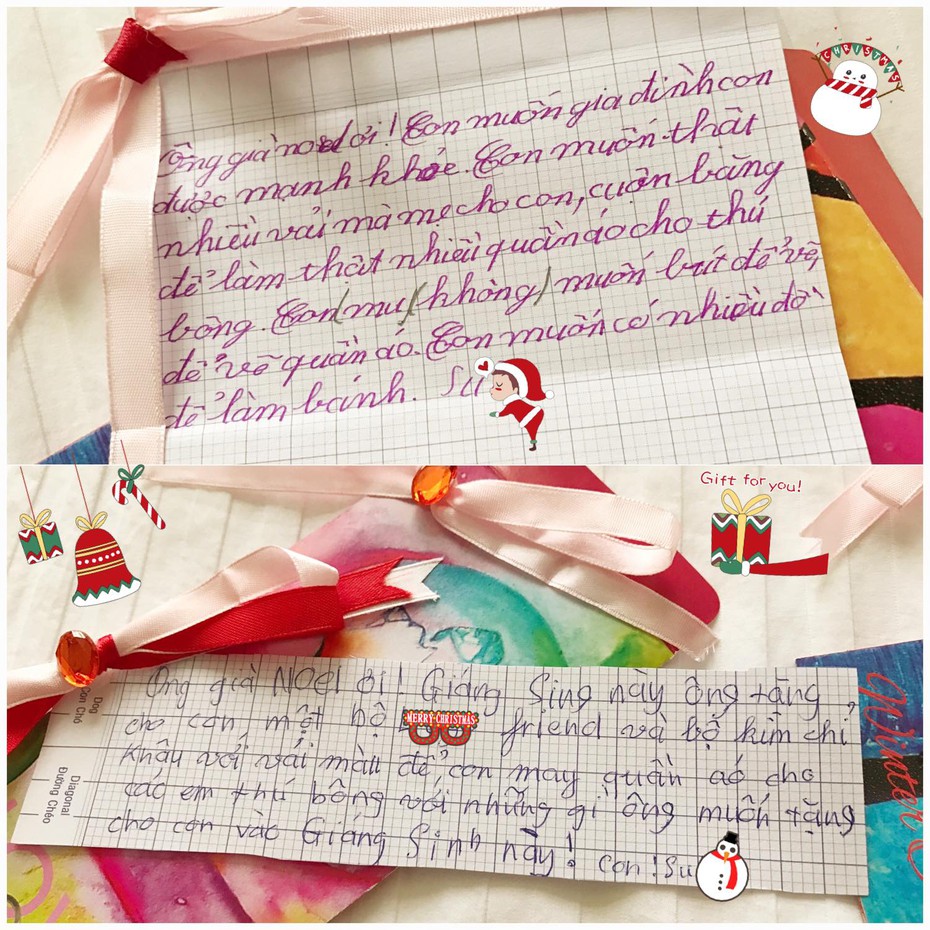 CHRISTMAS
Ông già noel ơi! Con muốn gia đình con
được mạnh khỏe. Con muốn thật
nhiều vải mà mẹ cho con, cuộn băng
để làm thật nhiều quần áo cho thú
bông. Con (mu (không) muốn bút để vẽ,
để vẽ quần áo. Con muốn có nhiều đồ
để làm bánh. Su
Gift for you!
Ông già NOEl ơi! Giáng Sing này ông tặng
cho con một bộ friend và bộ kim chỉ
MERRY CHRISTMAS
khâu với vải màu để con may quần áo cho
các em thú bông với những gì ông muốn tặng
cho con vào Giáng Sinh này! con! Su
Dog
Con Chó
Diagonal
Đường Chéo
Winter